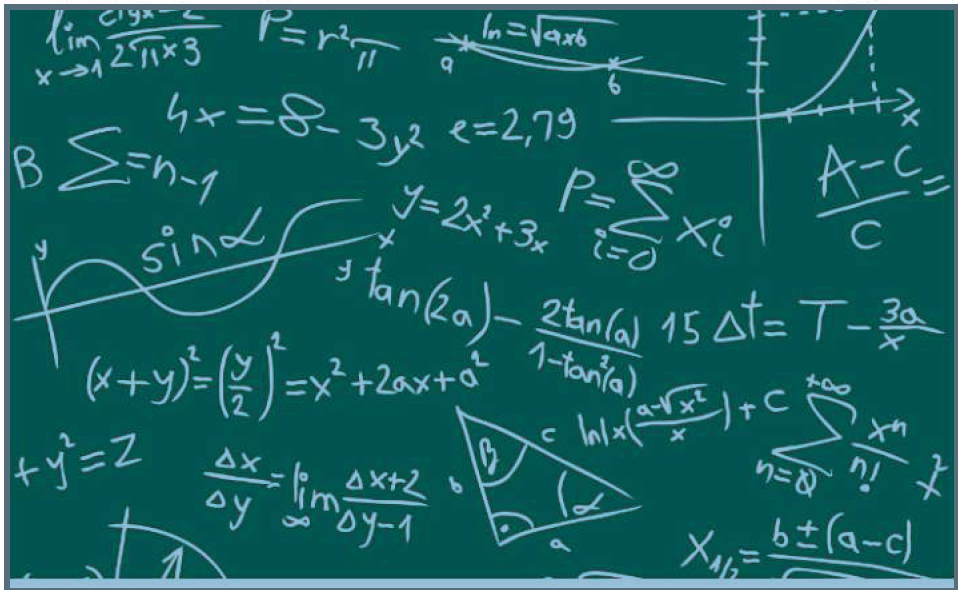 lim x→1 / 2π×3
P=r²π
ln=√a×b
a
b
4x=8-3y²
e=2,79
x
B Σ=n-1
y=2x²+3x
P=∞Σi=0 xi
A-C/C=
y
sinα
x
y
tan(2a)-2tan(a)/1-tan²(a)
15 Δt=T-3a/x
(x+y)²=(y/2)²=x²+2ax+a²
ln|x(a-√x²/x)+C
+∞Σn=0 xⁿ/n!
+y²=Z
Δx/Δy=lim∞ Δx+2/Δy-1
β
c
b
α
a
X1/2=b±(a-c)